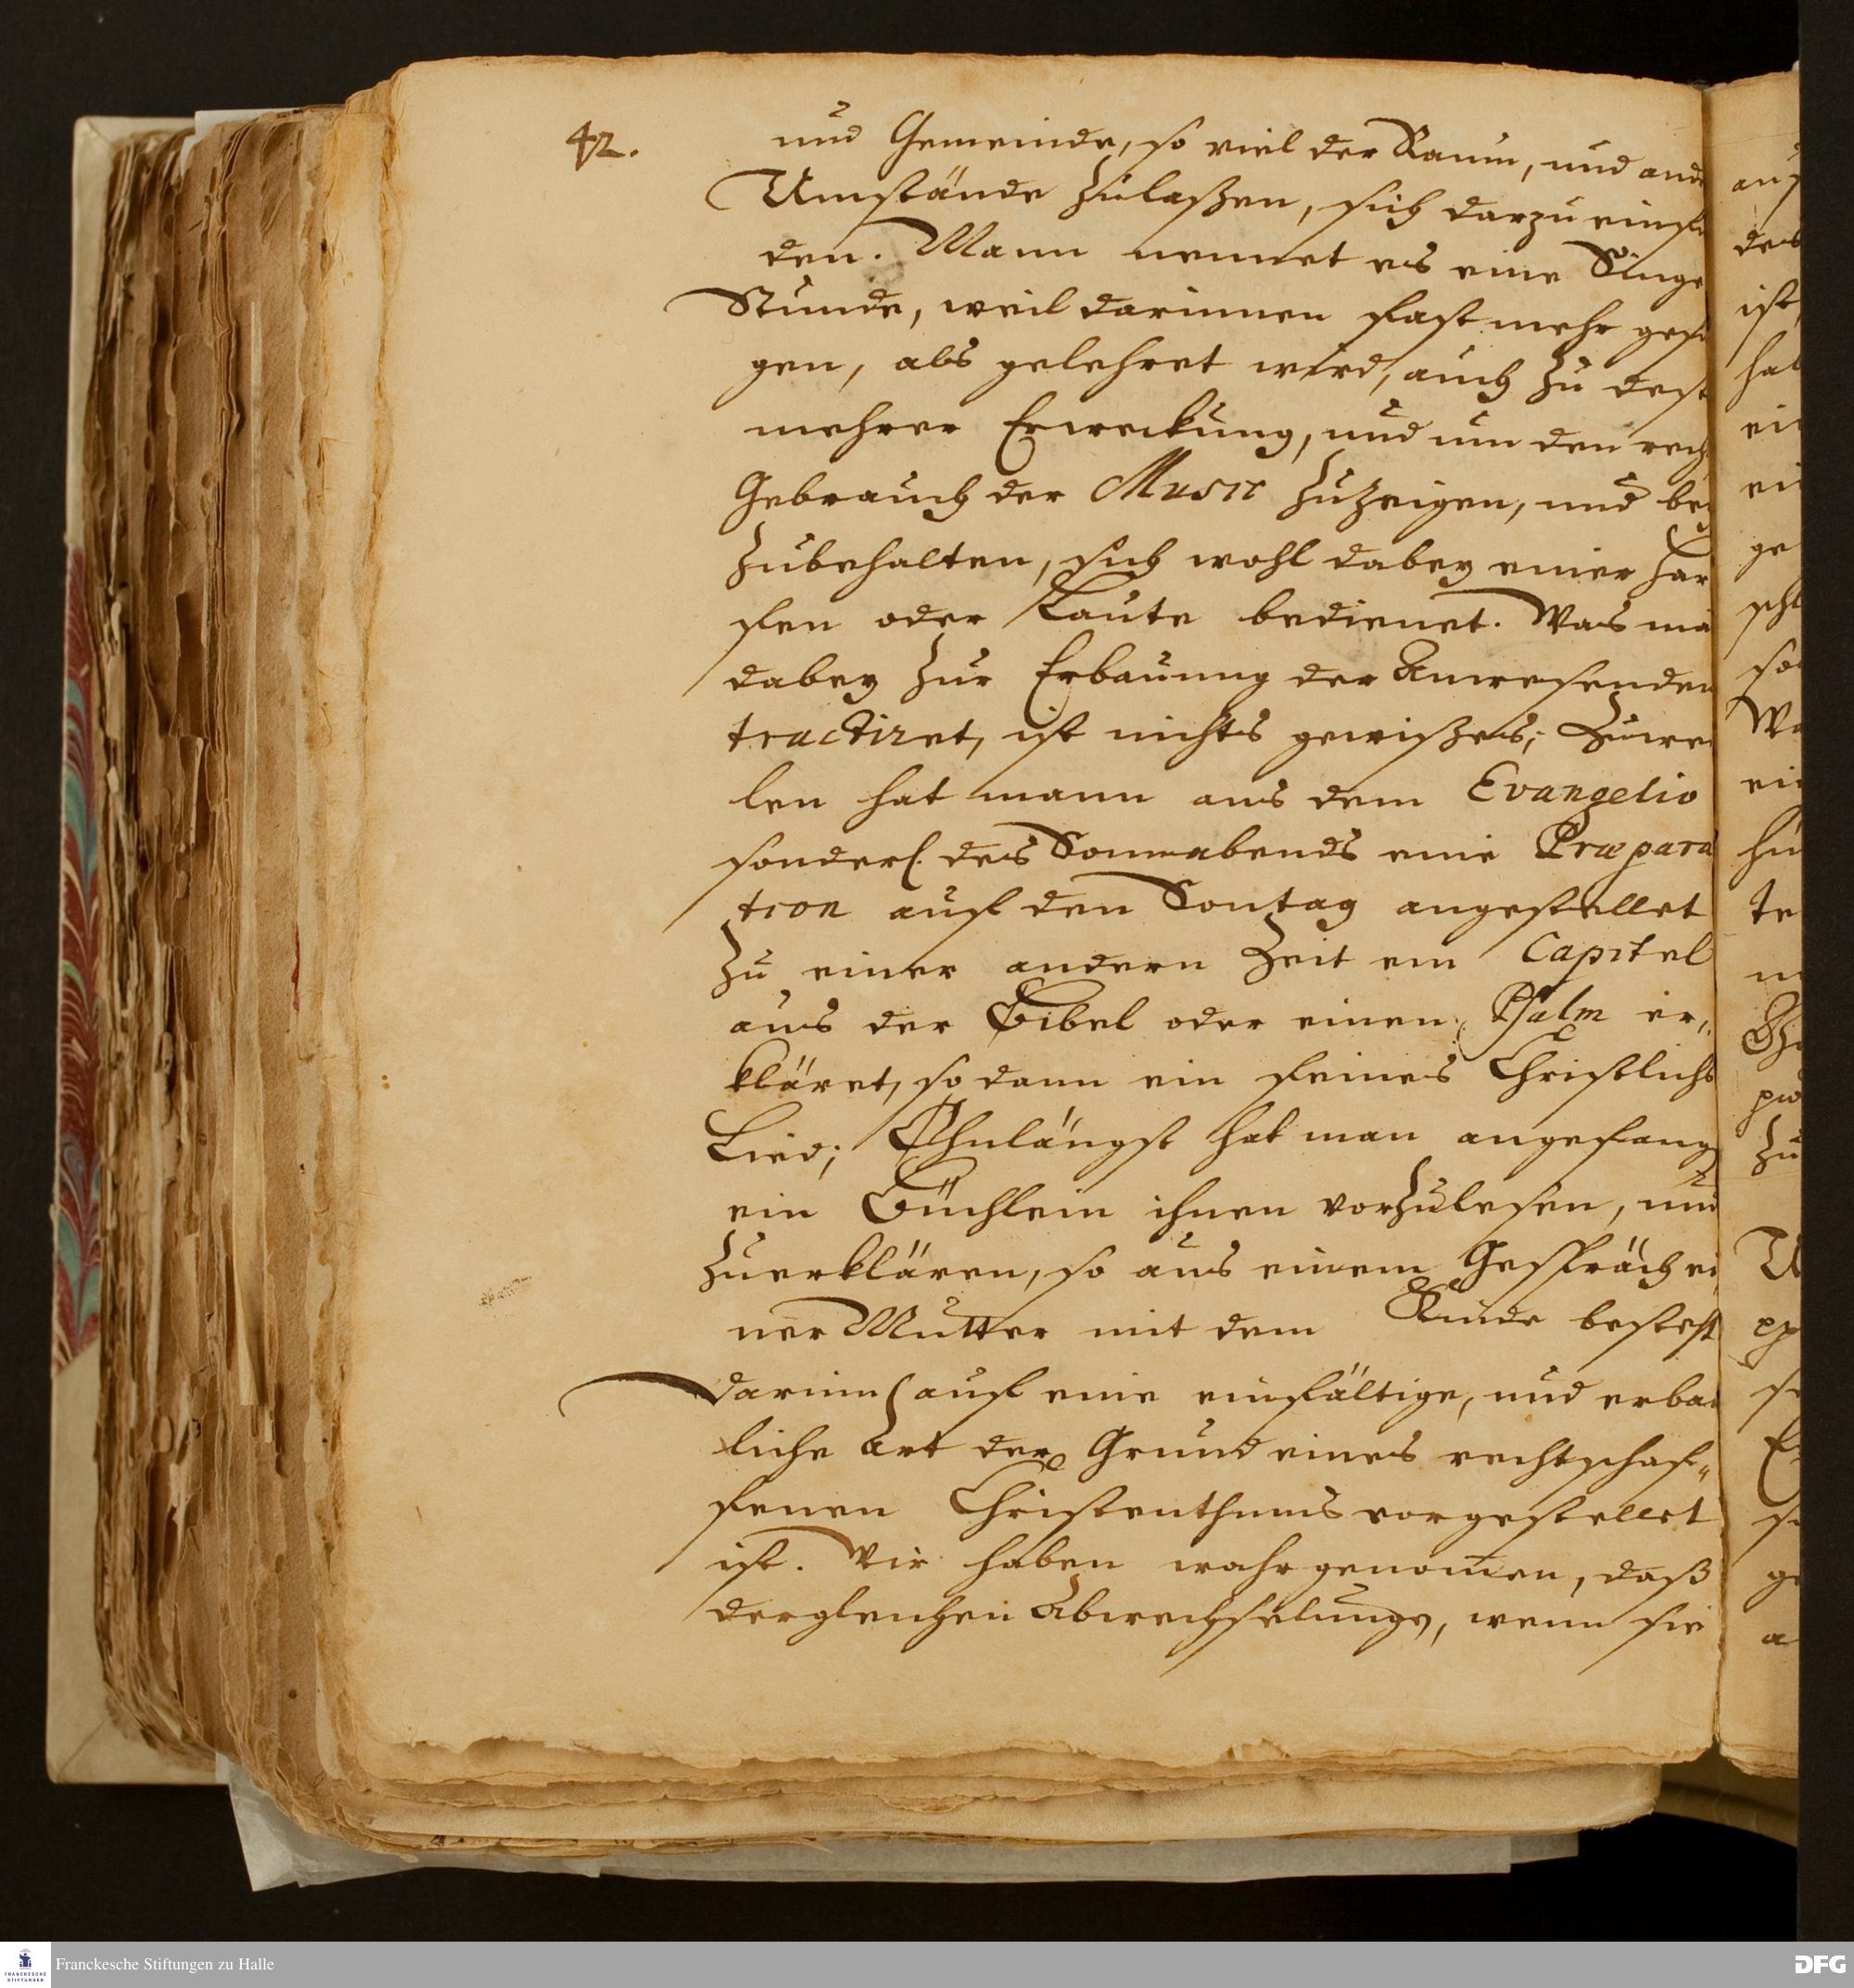 42.
und Gemeinde, so viel der Raum, und and
Umstände zulaßen, sich darzu einfi
den. Mann nennet es eine Singe
Stunde, weil darinnen fast mehr gesu
gen, als gelehret wird, auch zu dest
mehrer Erweckung, und um den rech
Gebrauch der Music zuzeigen, und bey
zubehalten, sich wohl dabey einer Har
fen oder Laute bedienet. Was ma
dabey zur Erbauung der Anwesenden
tractiret, ist nichts gewißes; Zuwei
len hat mann aus dem Evangelio
sonderl. des Sonnabends eine Præpara
tion auf den Sontag angestellet
Zu einer andern Zeit ein Capitel
aus der Bibel oder einen Psalm er„
kläret, so dann ein feines Christlichs
Lied; Ohnlängst hat man angefang
ein Büchlein ihnen vorzulesen, und
zuerklären, so aus einem Gespräch ei
ner Mutter mit dem Kinde besteht
darinn auf eine einfältige, und erbau
liche Art der Grund eines rechtschaf„
fenen Christenthums vorgestellet
ist. Wir haben wahrgenomen, daß
dergleichen Abwechselunge, wenn sie
auf
des
ist,
hat
ein
ein
ge
schl
so
Wa
ein
hin
te
zu
U
ge
a
Franckesche Stiftungen zu Halle
FRANCKESCHE
STIFTUNGEN
DFG